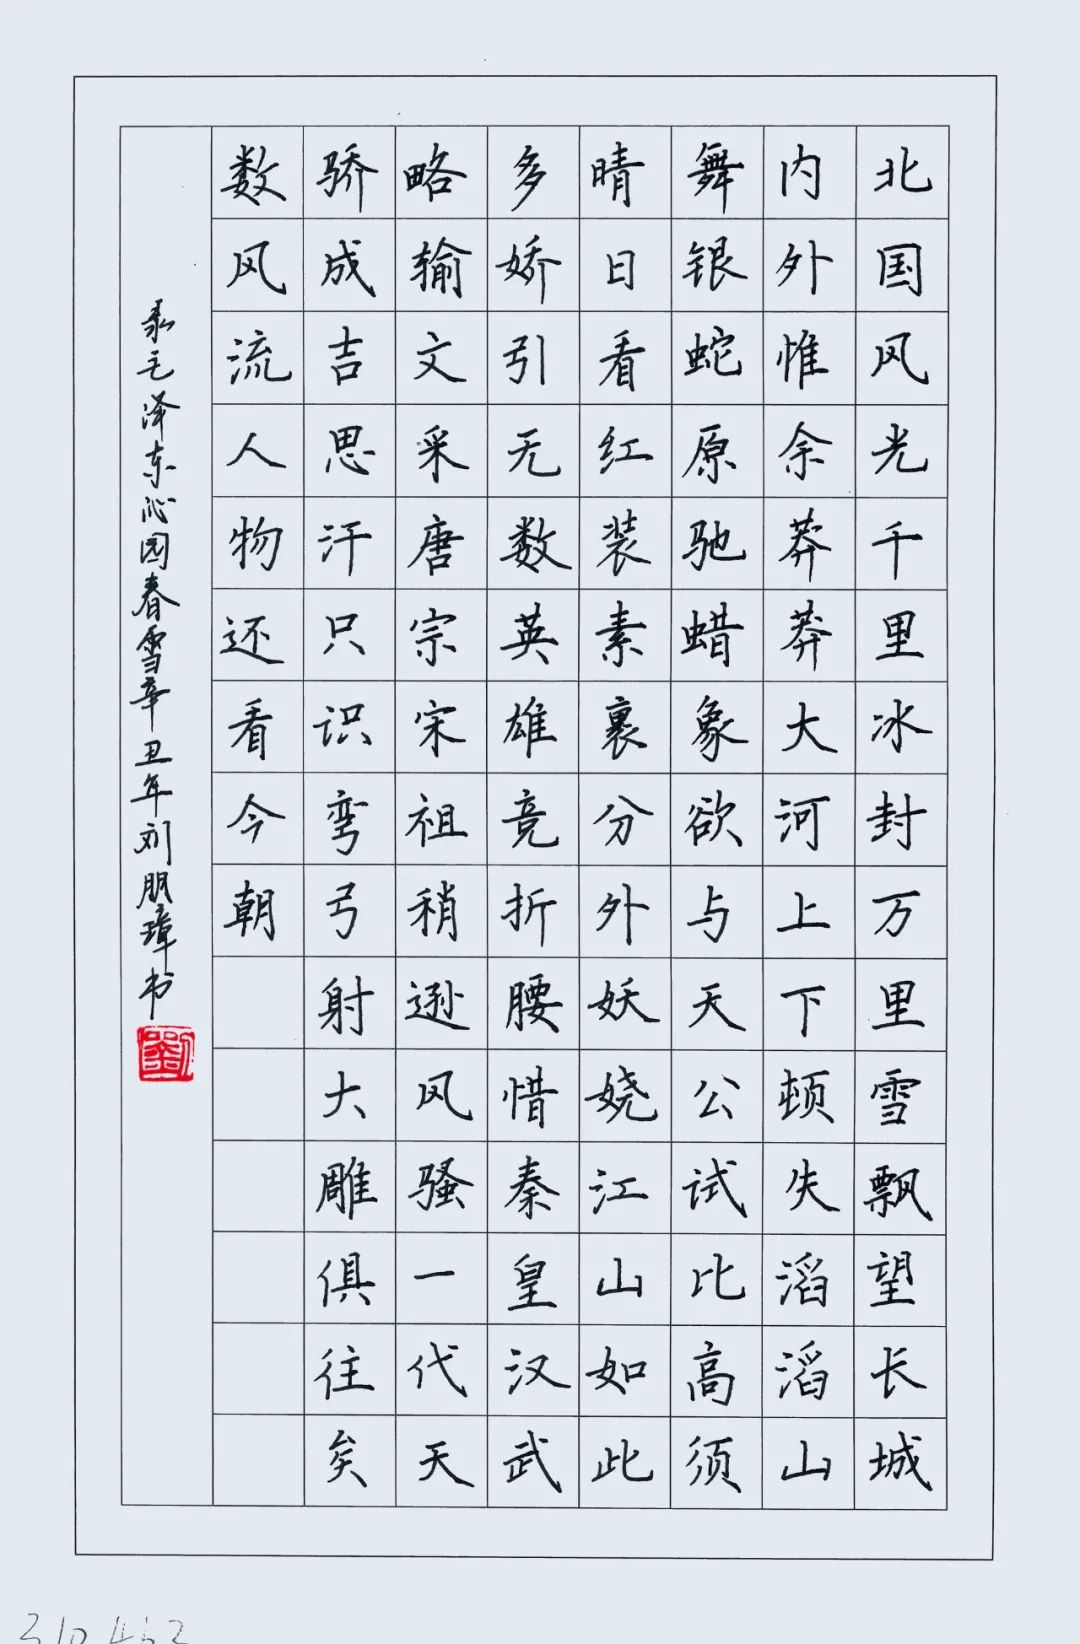 北国风光千里冰封万里雪飘望长城
内外惟余莽莽大河上下顿失滔滔山
舞银蛇原驰蜡象欲与天公试比高须
晴日看红装素裹分外妖娆江山如此
多娇引无数英雄竞折腰惜秦皇汉武
略输文采唐宗宋祖稍逊风骚一代天
骄成吉思汗只识弯弓射大雕俱往矣
数风流人物还看今朝
录毛泽东沁园春雪辛丑年刘朋璋书